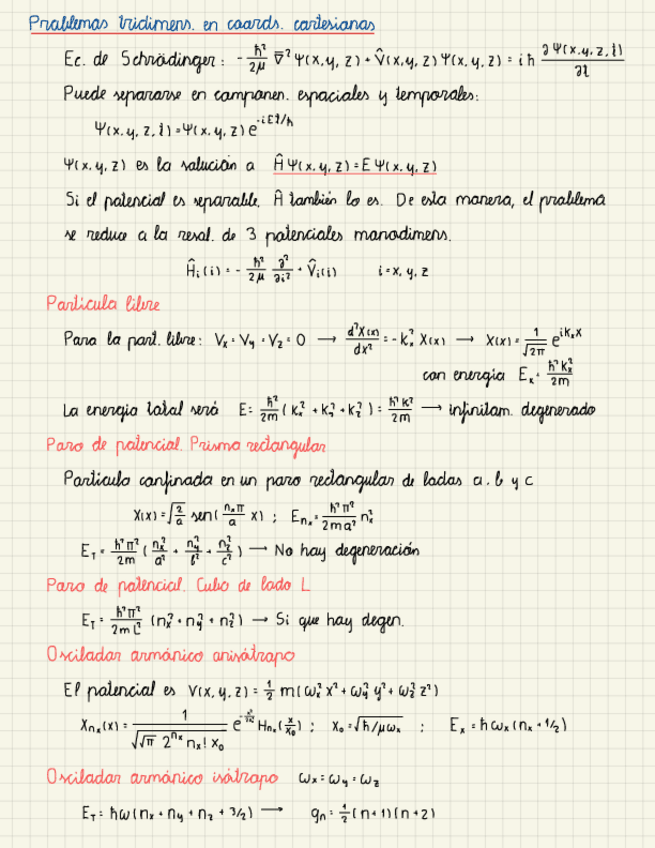 Problemas tridimens. en coords. cartesianas
Ec. de Schrödinger: -ħ²/2μ ∇² Ψ(x,y,z) + V̂(x,y,z) Ψ(x,y,z) = iħ ∂Ψ(x,y,z,t)/∂t
Puede separarse en componen. espaciales y temporales:
Ψ(x,y,z,t) = Ψ(x,y,z) e^(-iEt/ħ)
Ψ(x,y,z) es la solución a Ĥ Ψ(x,y,z) = E Ψ(x,y,z)
Si el potencial es separable, Ĥ también lo es. De esta manera, el problema
se reduce a la resol. de 3 potenciales monodimens.
Ĥi(i) = -ħ²/2μ ∂²/∂i² + V̂i(i) i = x, y, z
Partícula libre
Para la part. libre: Vx = Vy = Vz = 0 → d²X(x)/dx² = -kx² X(x) → X(x) = 1/√2π e^(ikxx)
con energía Ex = ħ²kx²/2m
La energía total será E = ħ²/2m (kx² + ky² + kz²) = ħ²k²/2m → infinitam. degenerado
Pozo de potencial. Prisma rectangular
Partícula confinada en un pozo rectangular de lados a, b y c
X(x) = √(2/a) sen(nxπ/a x) ; Enx = ħ²π²/2ma² nx²
ET = ħ²π²/2m (nx²/a² + ny²/b² + nz²/c²) → No hay degeneración
Pozo de potencial. Cubo de lado L
ET = ħ²π²/2mL² (nx² + ny² + nz²) → Si que hay degen.
Oscilador armónico anisótropo
El potencial es V(x,y,z) = 1/2 m(ωx² x² + ωy² y² + ωz² z²)
Xnx(x) = 1/√(√π 2^nx nx! x0) e^(-x²/2x0²) Hnx(x/x0) ; x0 = √(ħ/μωx) ; Ex = ħωx(nx + 1/2)
Oscilador armónico isótropo ωx = ωy = ωz
ET = ħω(nx + ny + nz + 3/2) → gn = 1/2 (n+1)(n+2)